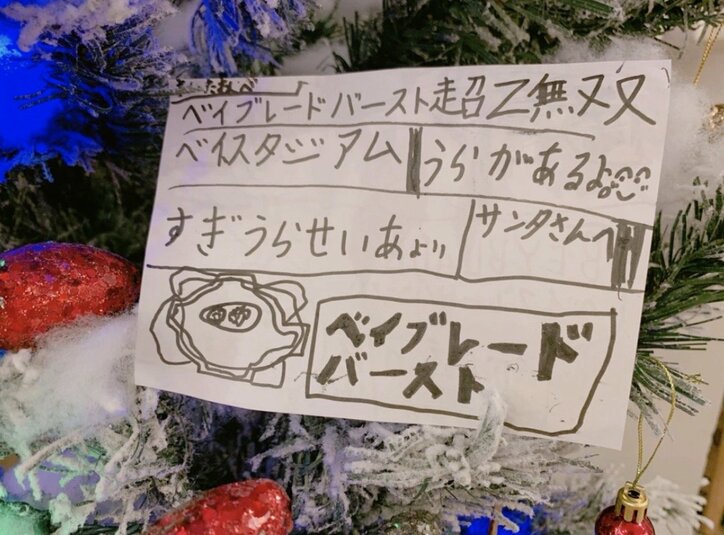 ベイブレードバースト超Z無双
ベイスタジアム うらがあるよ
すぎうらせいあより
サンタさんへ
ベイブレード
バースト